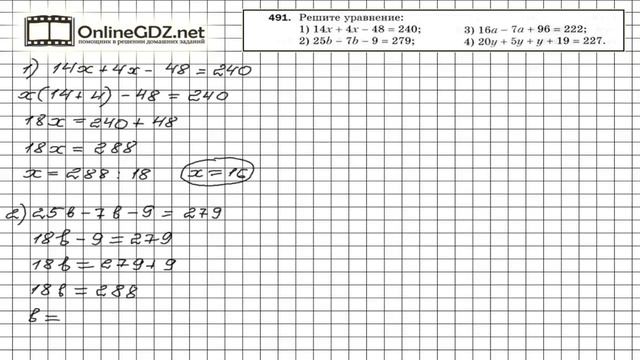 OnlineGDZ.net
помощник в решении домашних заданий
491. Решите уравнение:
1) 14x + 4x − 48 = 240;
2) 25b − 7b − 9 = 279;
3) 16a − 7a + 96 = 222;
4) 20y + 5y + y + 19 = 227.
1) 14x + 4x − 48 = 240
x(14+4) − 48 = 240
18x = 240 + 48
18x = 288
x = 288 : 18 x = 16
2) 25b − 7b − 9 = 279
18b − 9 = 279
18b = 279 + 9
18b = 288
b =